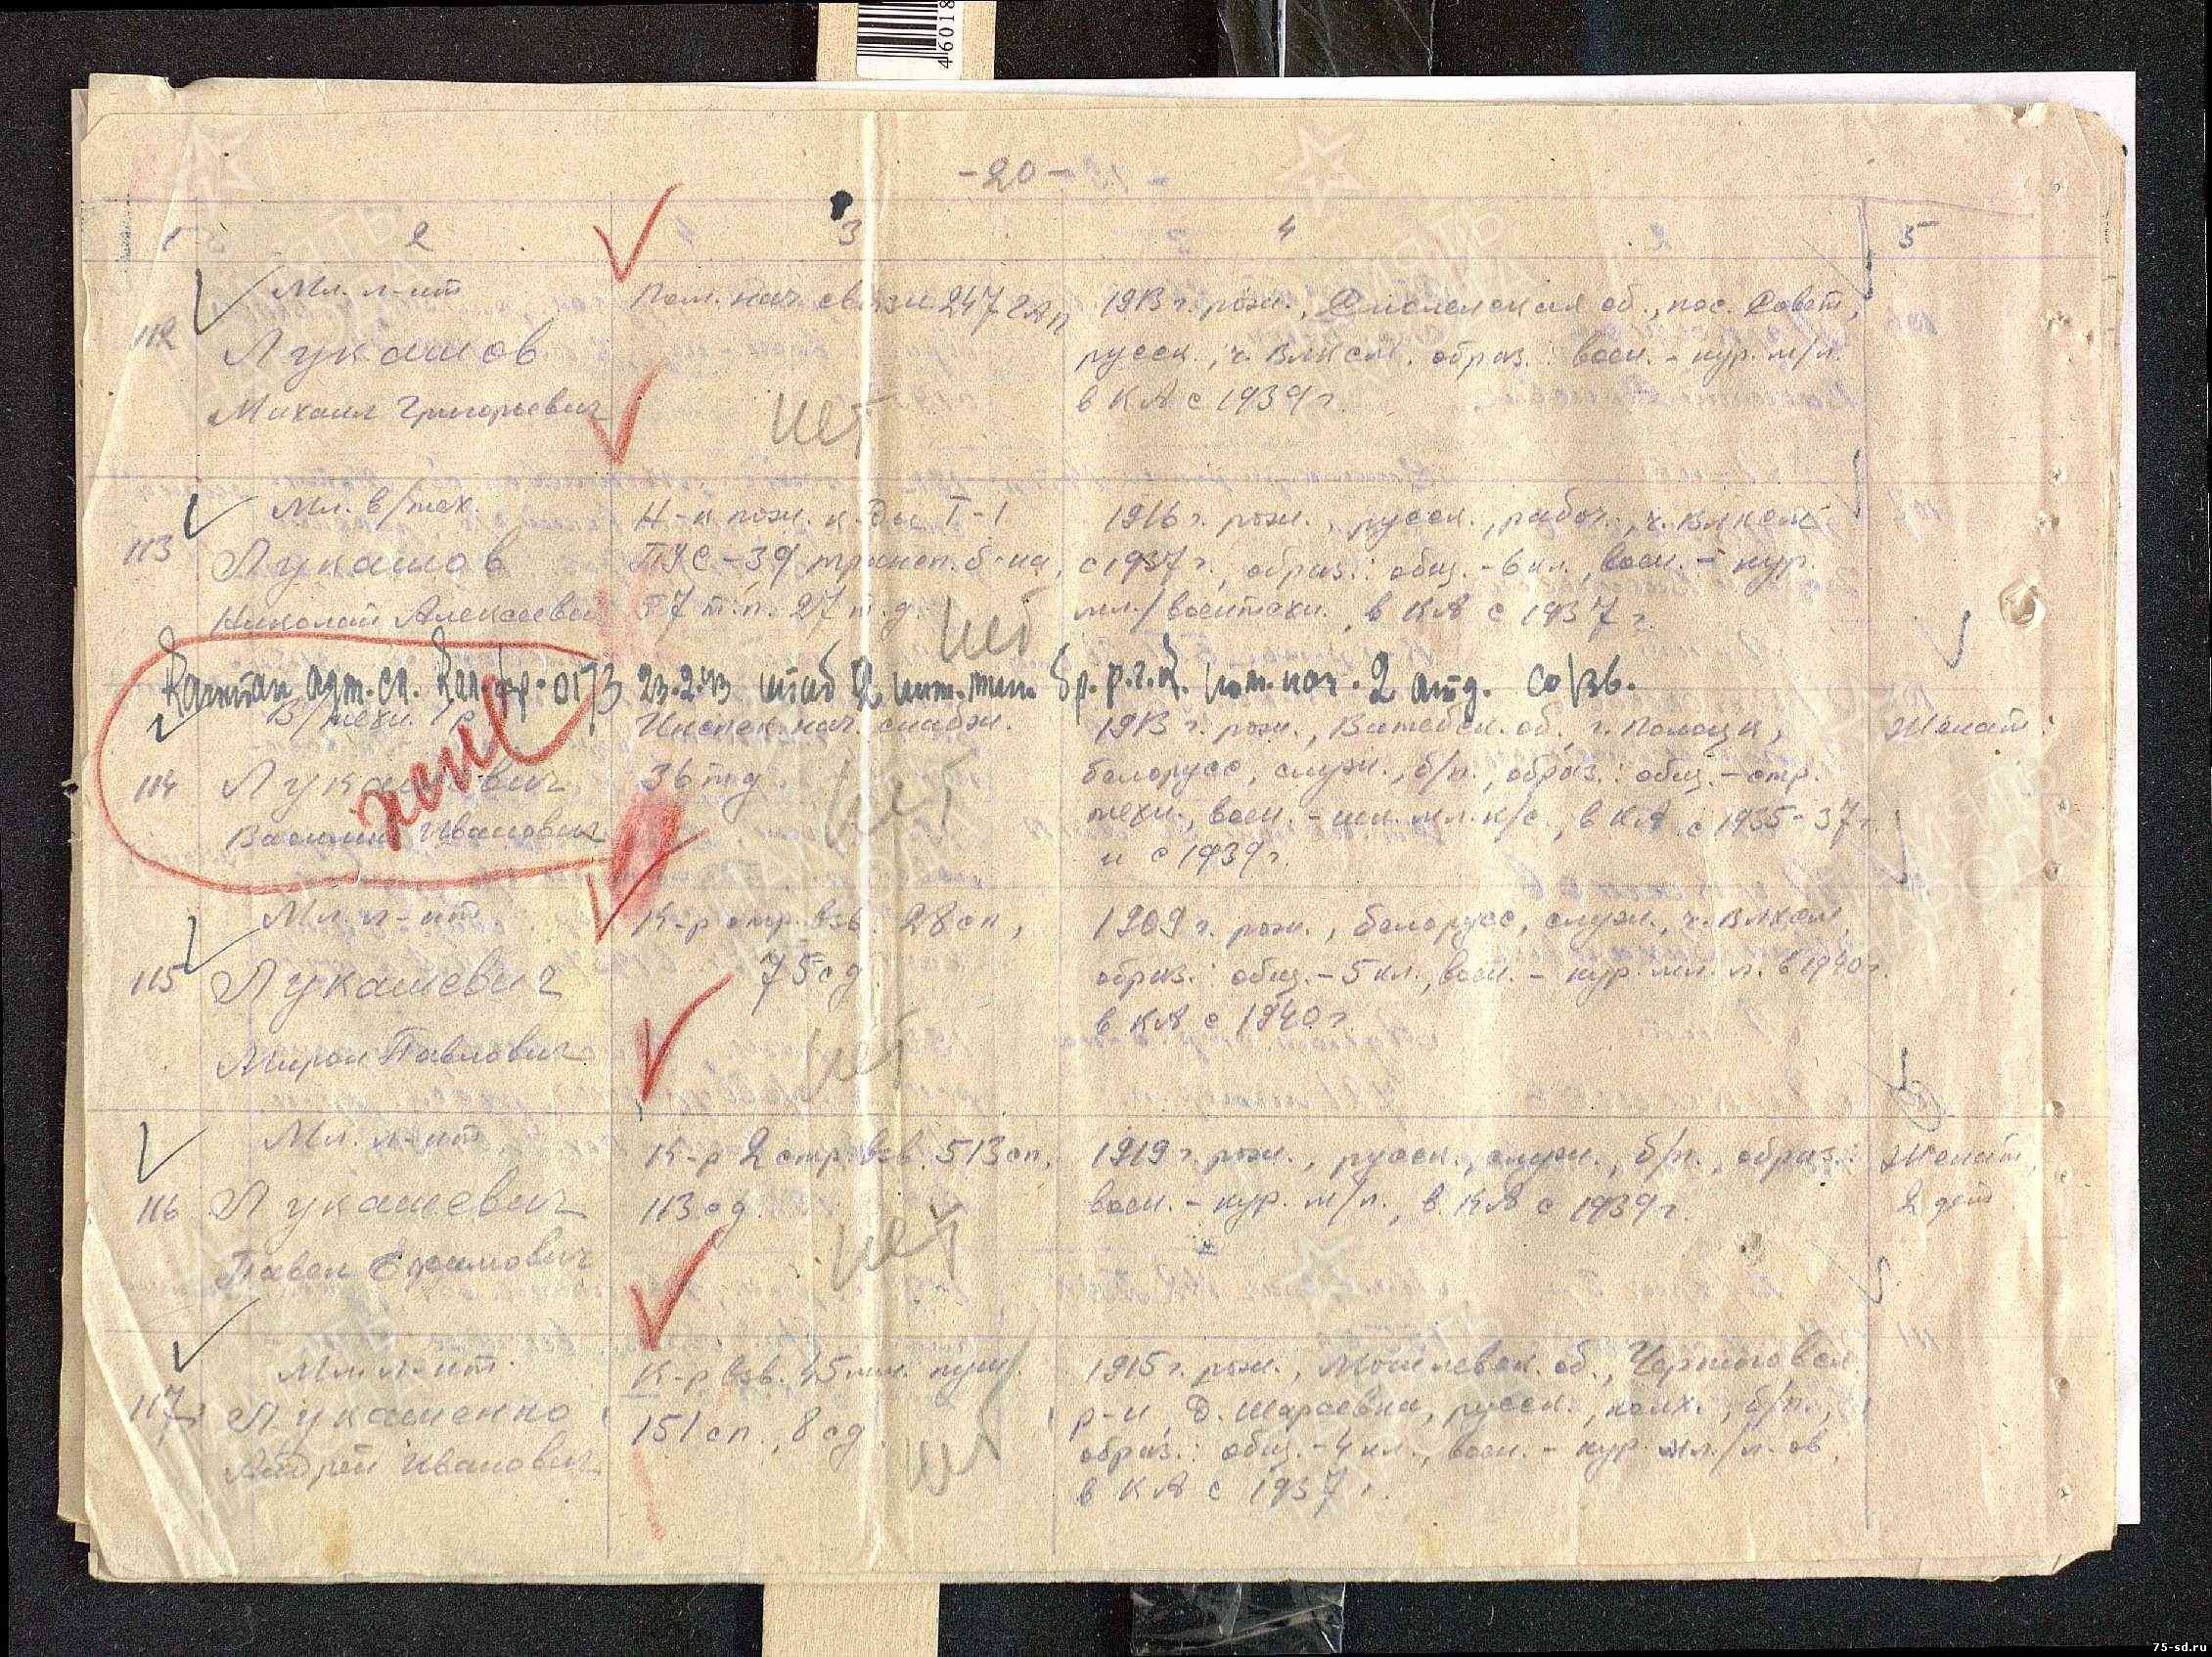 46018
-20-
1 2 3 4 5
Мл. л-нт
Пом. нач. связи 247 гап
1913 г. рожд., Смоленская об., пос. Совет,
112
Лукашов
русск., ч. ВЛКСМ. образ.: воен. - кур. м/л.
Михаил Григорьевич
в КА с 1939 г.
нет
Мл. в/тех.
Н-к пож. к-ды Т-1
1916 г. рожд., русск., рабоч., ч. ВЛКСМ
113
Лукашов
ПХС-39 трансп. б-на,
с 1937 г., образ.: общ. - 6 кл., воен. - кур.
Николай Алексеевич
57 т.п. 27 т.д.
мл./воентехн., в КА с 1937 г.
нет
Капитан адм. сл. Кал. фр. 0173 23.2.43 штаб 2 инт. мин. бр. р.г.к. пом. нач. 2 отд.
В/техн. 1 р
Инспек. нач. снабж.
1913 г. рожд., Витебск. об., г. Полоцк,
Женат
114
Лукашевич
36 тд.
белорусс, служ., б/п., образ.: общ. - стр.
Василий Иванович
техн., воен. - шк. мл. к/с., в КА с 1935-37 г.
и с 1939 г.
нет
Мл. л-нт.
К-р стр. взв. 28 сп,
1909 г. рожд., белорусс, служ., ч. ВЛКСМ,
115
Лукашевич
75 сд
образ.: общ. - 5 кл., воен. - кур. мл. л. в 1940 г.
Мирон Павлович
в КА с 1940 г.
нет
Мл. л-нт.
К-р 2 стр. взв. 513 сп,
1919 г. рожд., русск., служ., б/п., образ.:
Женат,
116
Лукашевич
113 сд.
воен. - кур. м/л., в КА с 1939 г.
2 дет
Павел Ефимович
нет
Мл. л-нт.
К-р взв. 45 мм. пуш.
1915 г. рожд., Могилевск. об.,
117
Лукашенко
151 сп., 8 сд
р-н, д. Шараевка, русск., колх., б/п.,
Андрей Иванович
образ.: общ. - 4 кл., воен. - кур. мл./л. ов,
в КА с 1937 г.
75-sd.ru